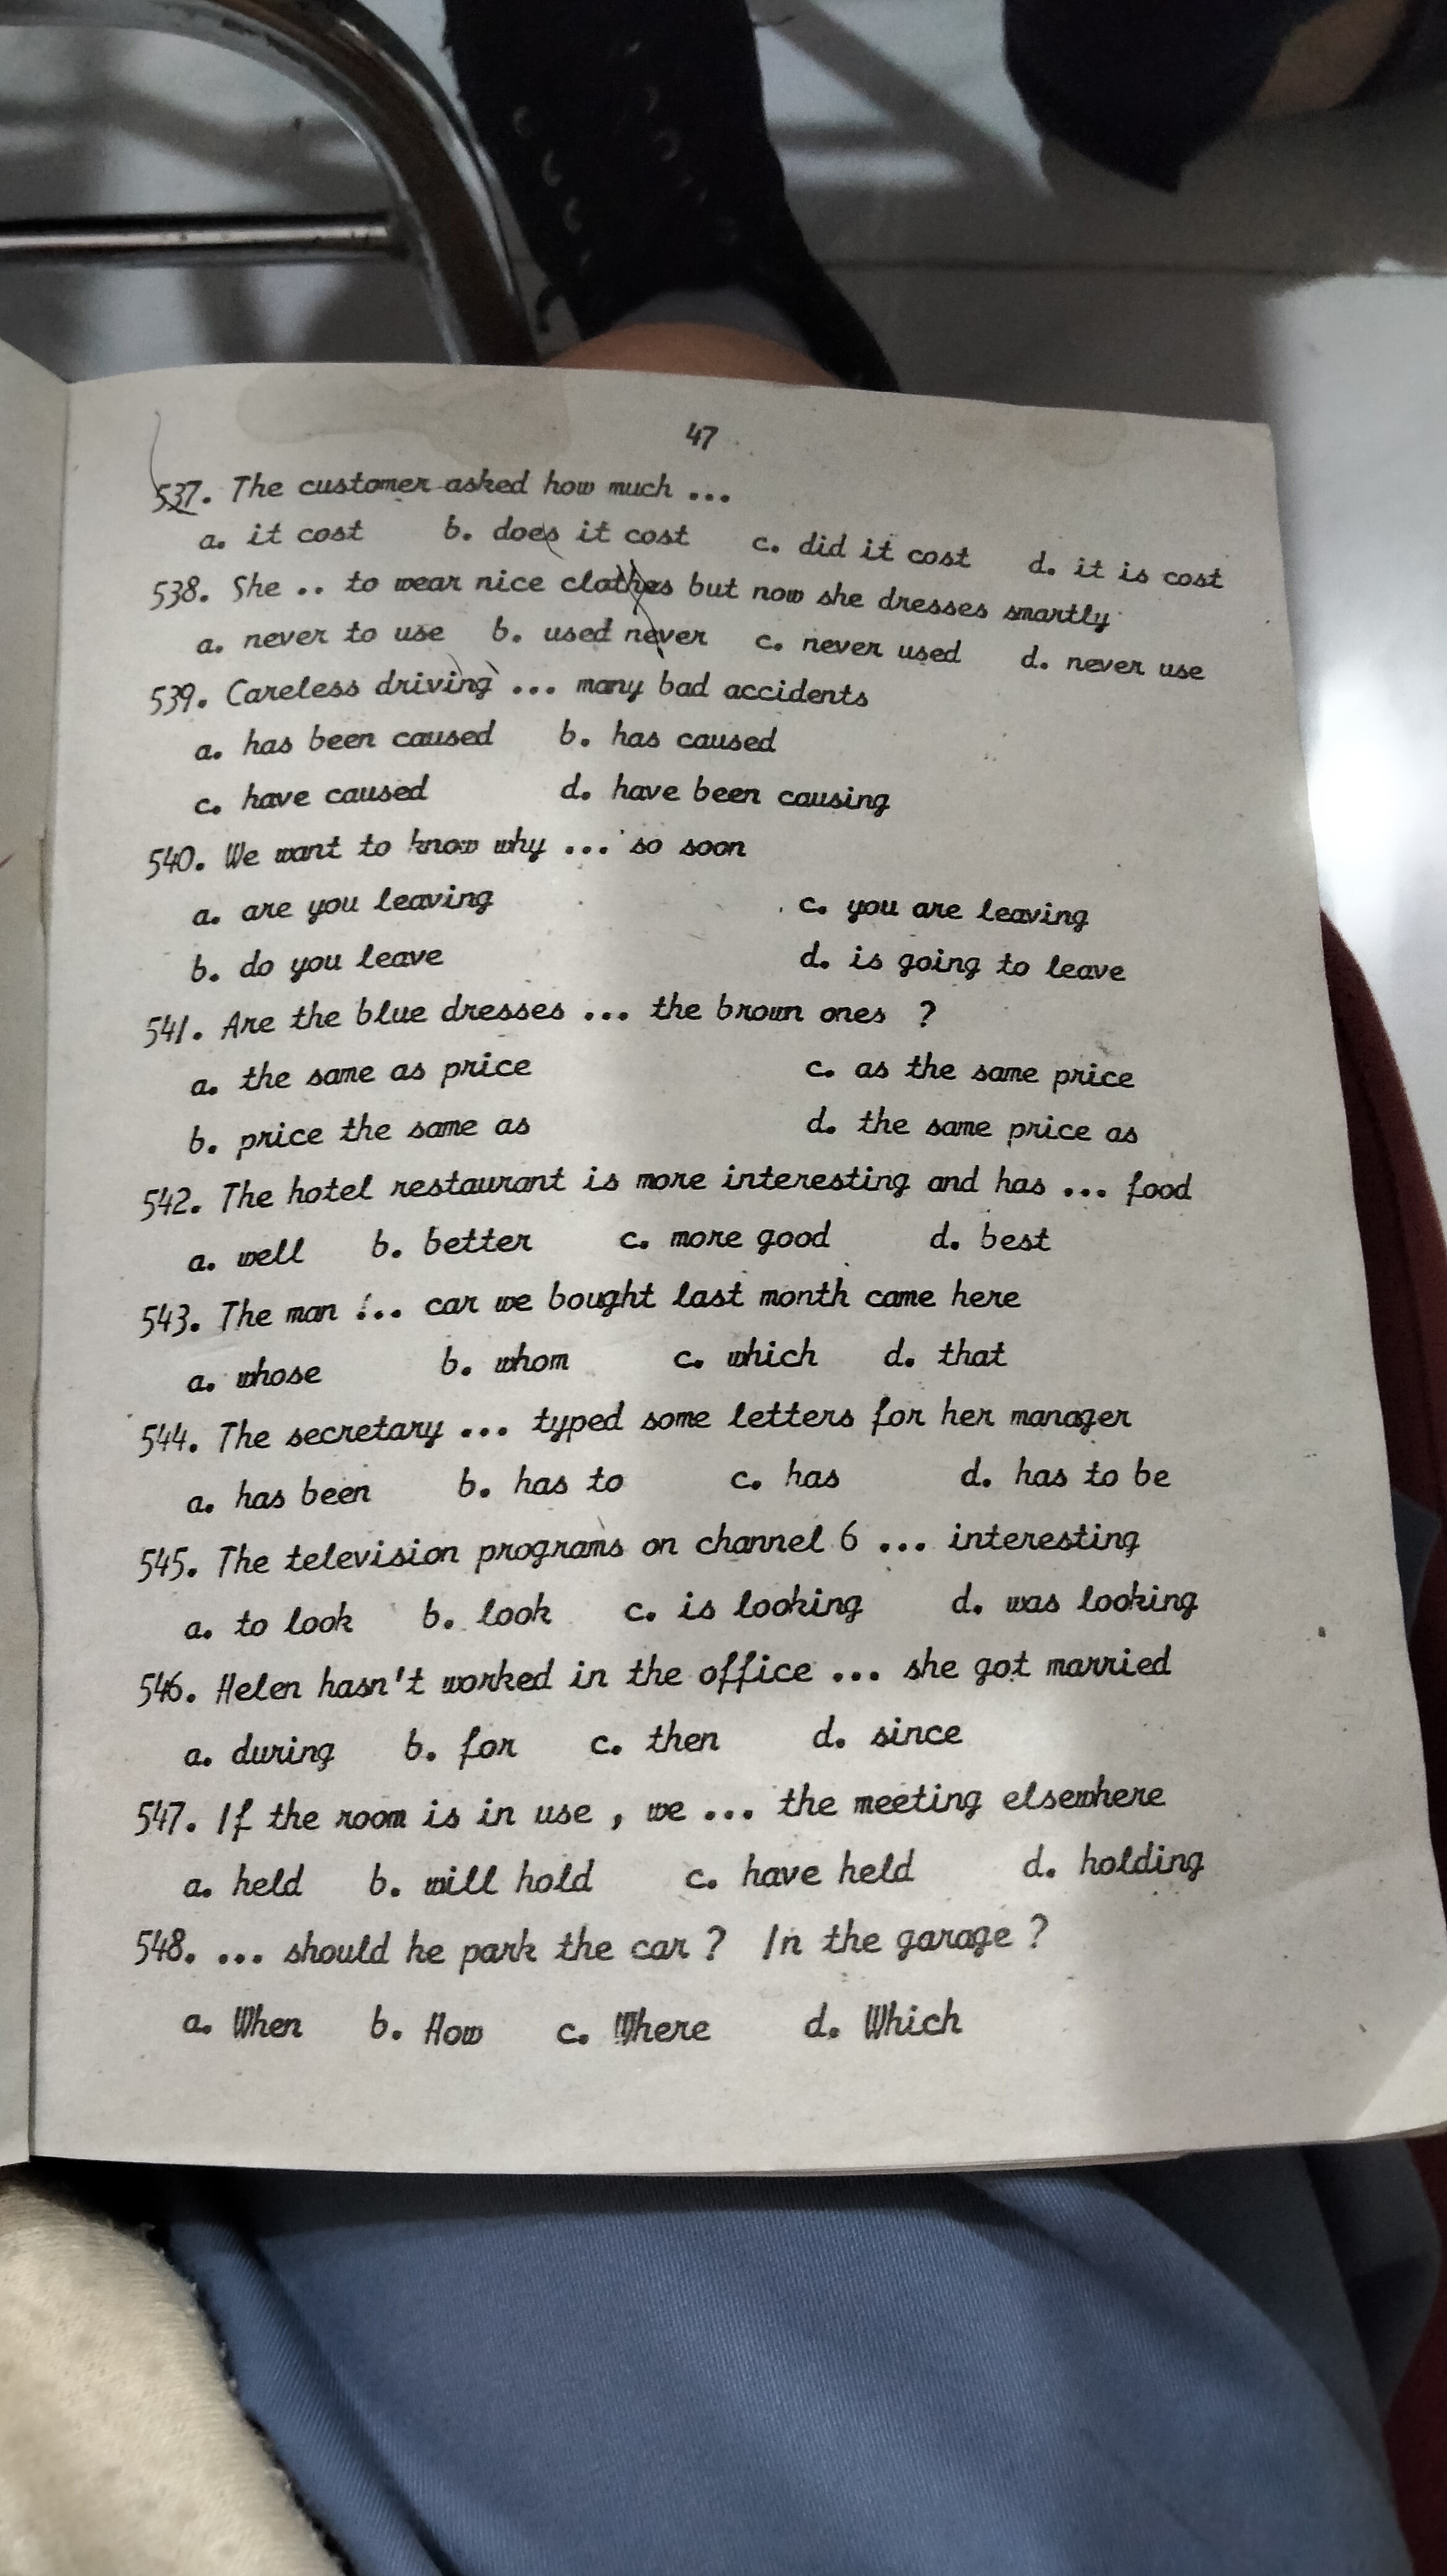 47
537. The customer asked how much ...
a. it cost b. does it cost c. did it cost d. it is cost
538. She .. to wear nice clothes but now she dresses smartly
a. never to use b. used never c. never used d. never use
539. Careless driving ... many bad accidents
a. has been caused b. has caused
c. have caused d. have been causing
540. We want to know why ... so soon
a. are you leaving c. you are leaving
b. do you leave d. is going to leave
541. Are the blue dresses ... the brown ones ?
a. the same as price c. as the same price
b. price the same as d. the same price as
542. The hotel restaurant is more interesting and has ... food
a. well b. better c. more good d. best
543. The man ... car we bought last month came here
a. whose b. whom c. which d. that
544. The secretary ... typed some letters for her manager
a. has been b. has to c. has d. has to be
545. The television programs on channel 6 ... interesting
a. to look b. look c. is looking d. was looking
546. Helen hasn't worked in the office ... she got married
a. during b. for c. then d. since
547. If the room is in use , we ... the meeting elsewhere
a. held b. will hold c. have held d. holding
548. ... should he park the car ? In the garage ?
a. When b. How c. Where d. Which